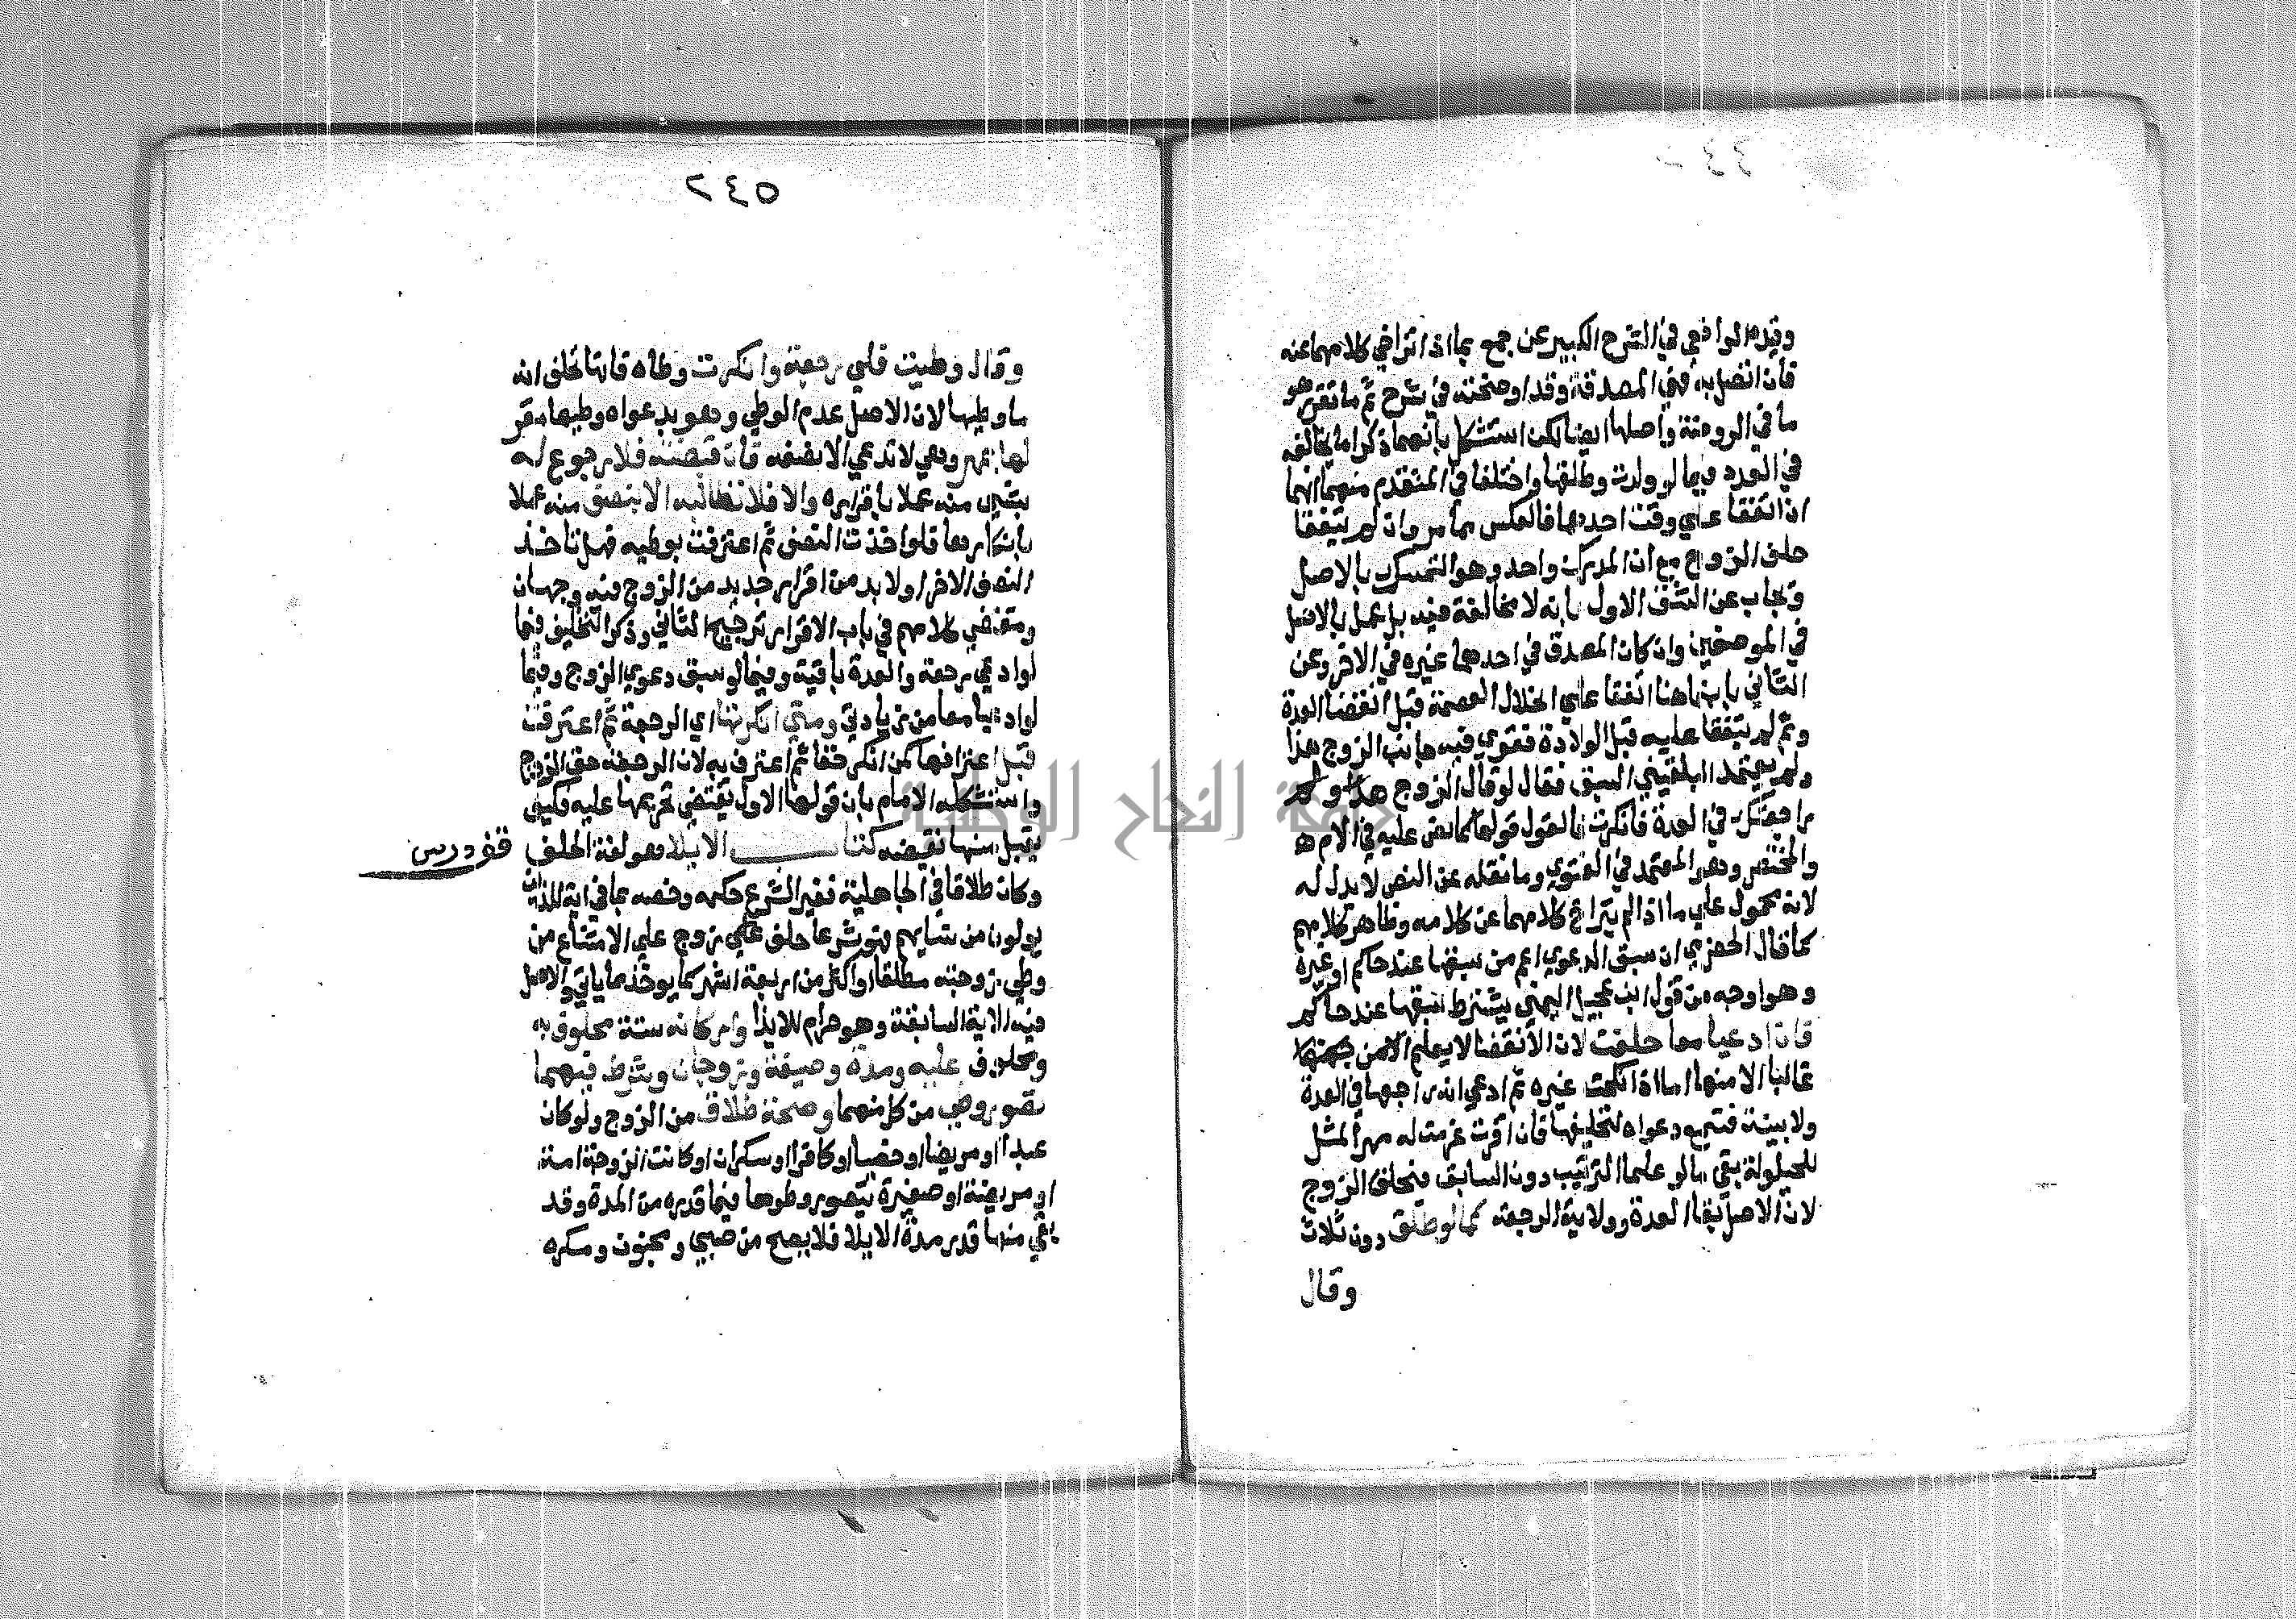 وقيده الرافعي في الشرح الكبير عن جمع بما اذا تراخي كلامها عنه
فان اتصل به فهي المصدقة وقد اوضحته في شرح ثم ما تقرر هو
ما في الروضة واصلها ايضا لكن استشكل بانهما ذكرا ما يخالفه
في العدد فيما لو ولدت وطلقها واختلفا في المتقدم منهما انهما
ان اتفقا علي وقت احدهما فالعكس مما مر وان لم يتفقا
حلف الزوج مع ان المدرك واحد وهو التمسك بالاصل
ويجاب عن الشق الاول بانه لا مخالفة فيه بل عمل بالاصل
في الموضعين وان كان المصدق في احدهما غيره في الاخر وعن
الثاني بانهما هنا اتفقا علي انحلال العصمة قبل انقضا العدة
وثم لم يتفقا عليه قبل الولادة فقوي فيه جانب الزوج هذا
ولم يعتمد البلقيني السبق فقال لو قال الزوج
راجعتك في العدة فانكرت فالقول قولها كما نص عليه في الام
والمختصر وهو المعتمد في الفتوي وما نقله عن النص لا يدل له
لانه محمول علي ما اذا لم يتراخ كلامها عن كلامه وظاهر كلامهم
كما قال الحضرمي ان سبق الدعوي اعم من سبقها عند حاكم او غيره
وهو اوجه من قول ابن عجيل اليمني يشترط سبقها عند حاكم
فان ادعيا معا حلفت لان الانقضا لا يعلم الا من جهتها
غالبا الا منها اما اذا نكحت غيره ثم ادعي انه راجعها في العدة
ولا بينة فتسمع دعواه لتحليفها فان اقرت غرمت له مهر المثل
للحيلولة بقي ما لو علما الترتيب دون السابق فيحلف الزوج
لان الاصل بقا العدة وولاية الرجعة كما لو طلق دون ثلاث
وقال
٥٤٢
وقال وطيت فلي رجعة وانكرت وطاه فانها تحلف انه
ما وطيها لان الاصل عدم الوطي وهو بدعواه وطيها مقر
لها بمهر وهي لا تدعي الا نصفه فان قبضته فلا رجوع له
بشي منه عملا باقراره والا فلا تطالبه الا بنصف منه عملا
بانكارها فلو اخذت النصف ثم اعترفت بوطيه فهل تاخذ
النصف الاخر او لا بد من اقرار جديد من الزوج فيه وجهان
ومقتضي كلامهم في باب الاقرار ترجيح الثاني وذكر التحليف فيما
لو ادعي رجعة والعدة باقية وفيما لو سبق دعوي الزوج وفيما
لو ادعيا معا من زيادتي ومتي انكرتها اي الرجعة ثم اعترفت
قبل اعترافها كمن انكر حقا ثم اعترف به لان الرجعة حق الزوج
واستشكله الامام بان قولها الاول يقتضي تحريمها عليه فكيف
يقبل منها نقيضه كتاب الايلا هو لغة الحلف
قف درس
وكان طلاقا في الجاهلية فغير الشرع حكمه وخصه بما في اية للذين
يولون من نسايهم فهو شرعا حلف علي زوج علي الامتناع من
وطي زوجته مطلقا او اكثر من اربعة اشهر كما يوخذ مما ياتي والاصل
فيه الاية السابقة وهو حرام للايذا واركانه ستة محلوف به
ومحلوف عليه ومدة وصيغة وزوجان وشرط فيهما
تصور وطي من كل منهما وصحة طلاق من الزوج ولو كان
عبدا او مريضا او خصيا او كافرا او سكران او كانت الزوجة امة
او مريضة او صغيرة يتصور وطوها فيما قدره من المدة وقد
بقي منها قدر مدة الايلا فلا يصح من صبي ومجنون ومكره
جامعة النجاح الوطنية